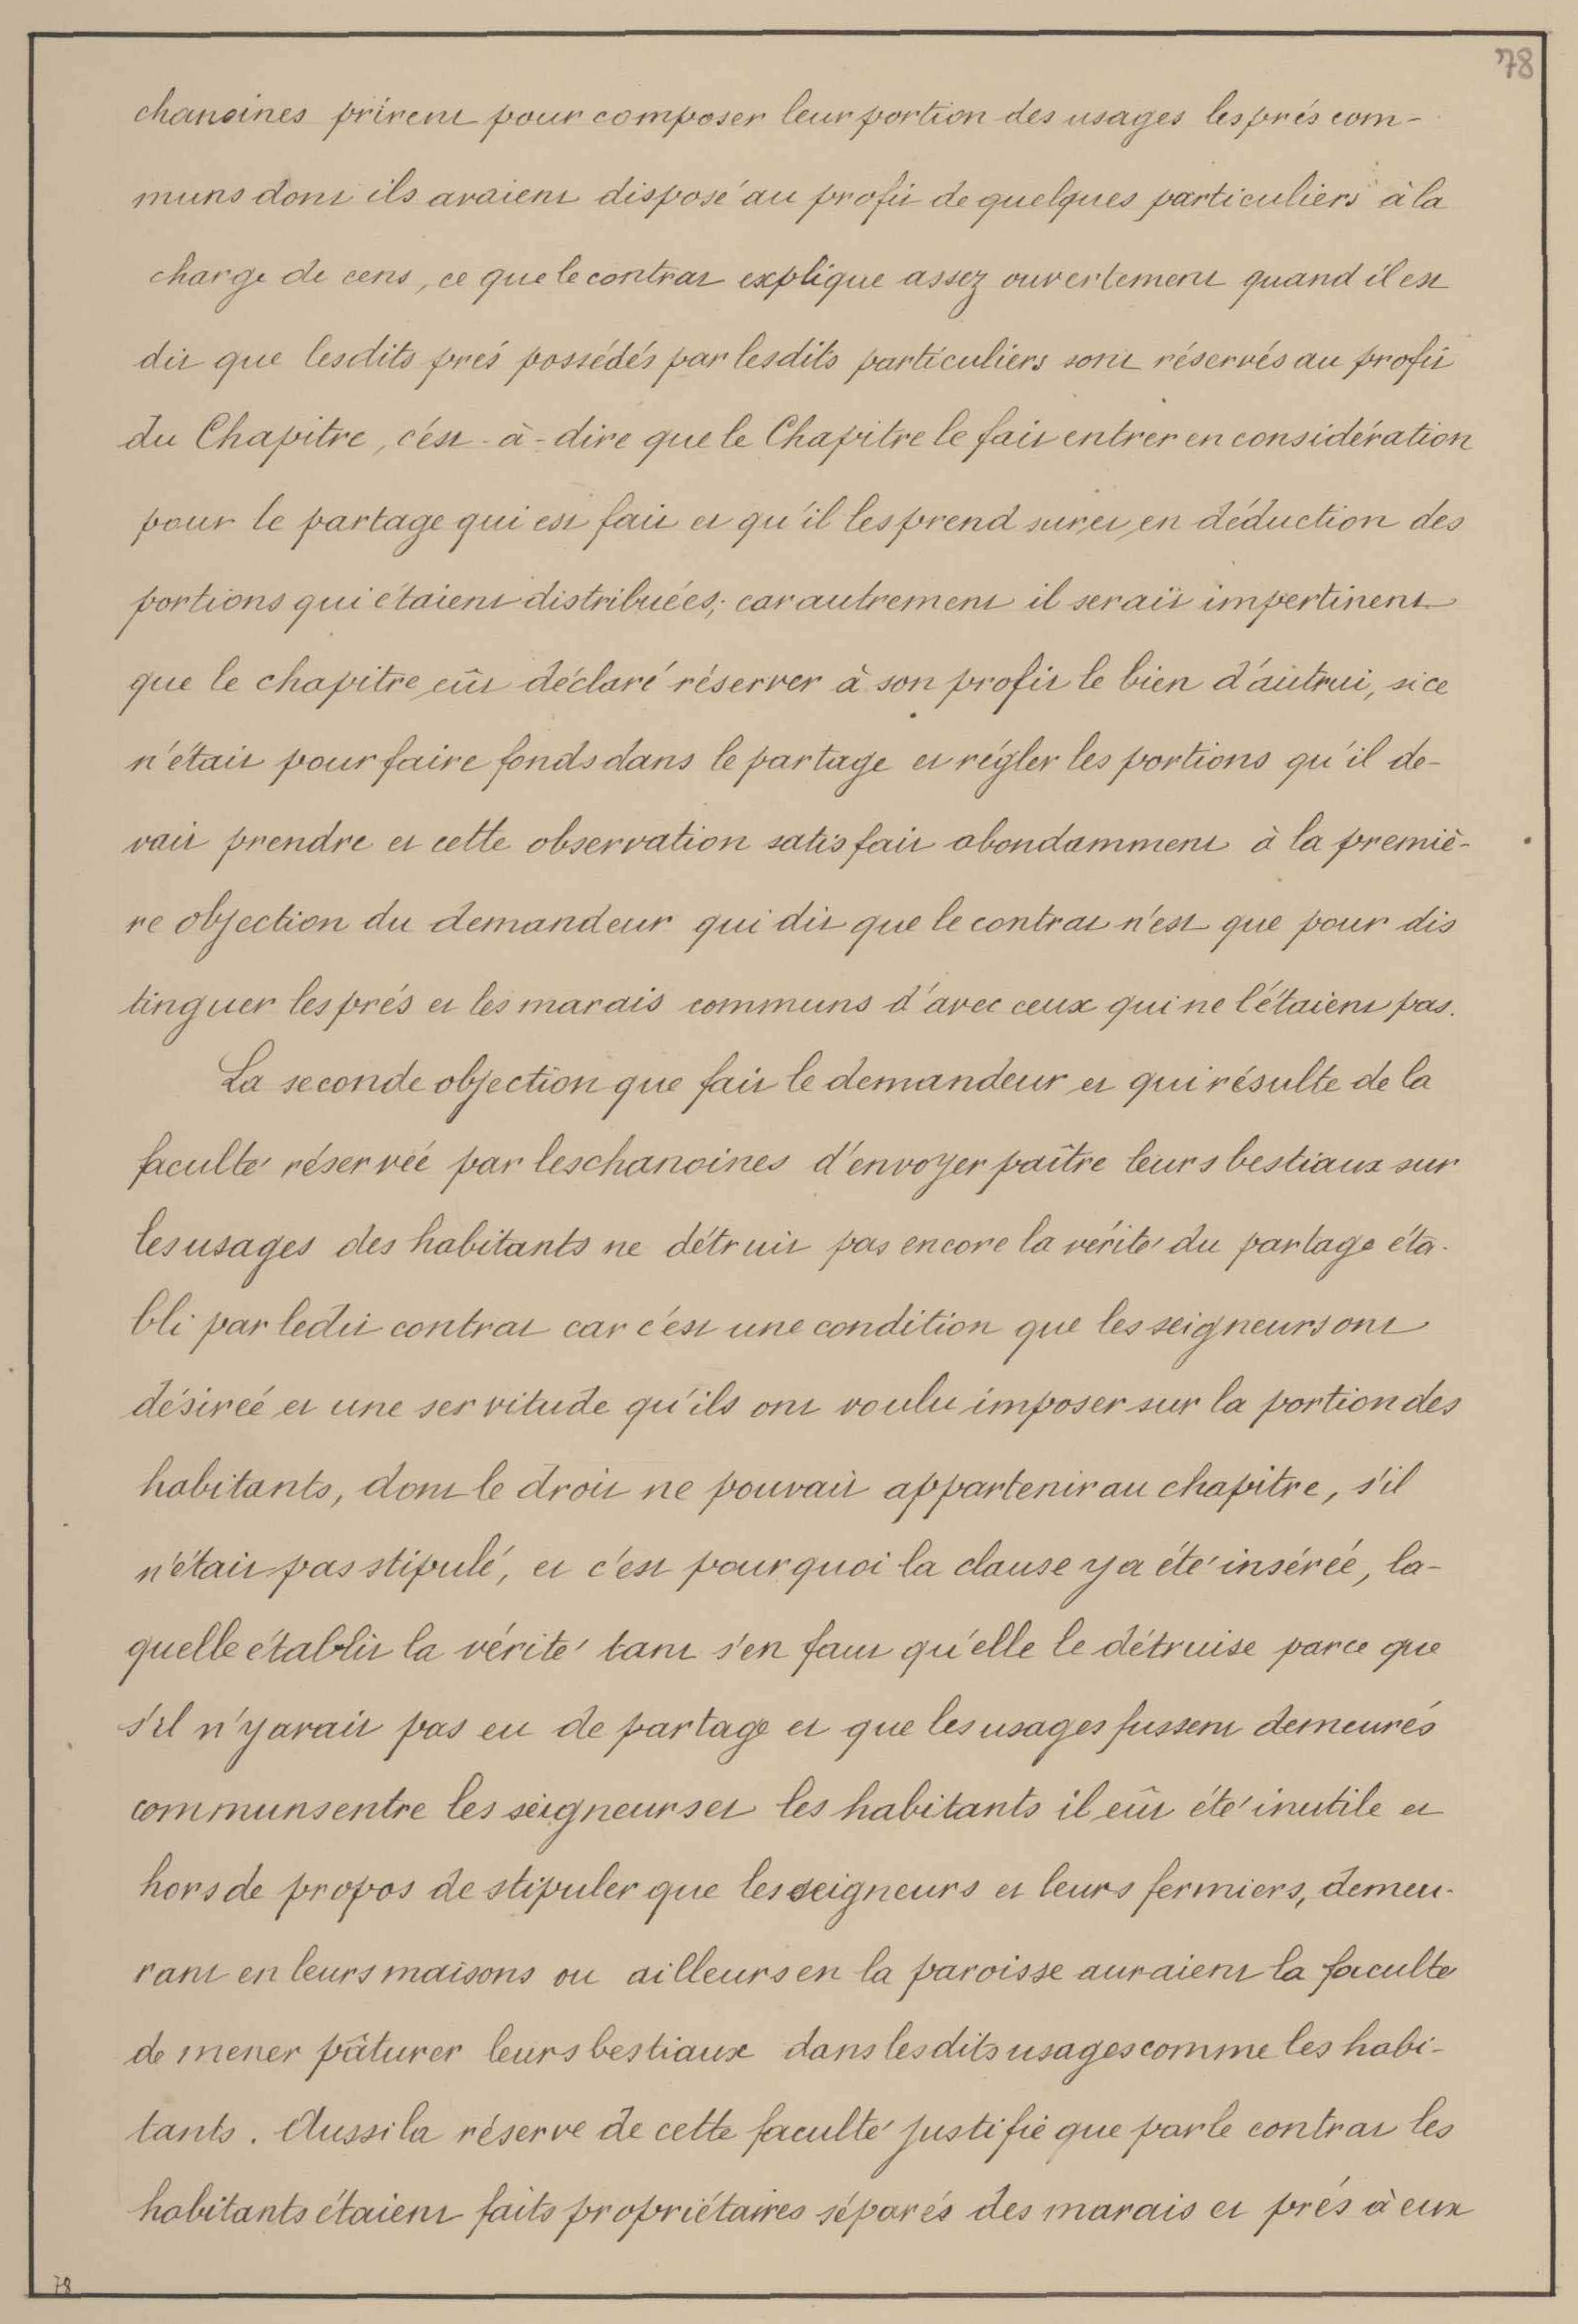 78
chanoines prirent pour composer leur portion des usages les prés com-
muns dont ils avaient disposé au profit de quelques particuliers à la
charge de cens, ce que le contrat explique assez ouvertement quand il est
dit que lesdits prés possédés par lesdits particuliers sont réservés au profit
du Chapitre, c'est-à-dire que le Chapitre le fait entrer en considération
pour le partage qui est fait et qu'il les prend sur et en déduction des
portions qui étaient distribuées; car autrement il serait impertinent
que le chapitre eût déclaré réserver à son profit le bien d'autrui, si ce
n'était pour faire fonds dans le partage et régler les portions qu'il de-
vait prendre et cette observation satisfait abondamment à la premiè-
re objection du demandeur qui dit que le contrat n'est que pour dis
tinguer les prés et les marais communs d'avec ceux qui ne l'étaient pas.
La seconde objection que fait le demandeur et qui résulte de la
faculté réservée par les chanoines d'envoyer paître leurs bestiaux sur
les usages des habitants ne détruit pas encore la vérité du partage éta-
bli par ledit contrat car c'est une condition que les seigneurs ont
désirée et une servitude qu'ils ont voulu imposer sur la portion des
habitants, dont le droit ne pouvait appartenir au chapitre, s'il
n'était pas stipulé, et c'est pourquoi la clause y a été insérée, la-
quelle établit la vérité tant s'en faut qu'elle le détruise parce que
s'il n'y avait pas eu de partage et que les usages fussent demeurés
communs entre les seigneurs et les habitants il eût été inutile et
hors de propos de stipuler que les seigneurs et leurs fermiers, demeu-
rant en leurs maisons ou ailleurs en la paroisse auraient la faculté
de mener pâturer leurs bestiaux dans lesdits usages comme les habi-
tants. Aussi la réserve de cette faculté justifie que par le contrat les
habitants étaient faits propriétaires séparés des marais et prés à eux
78